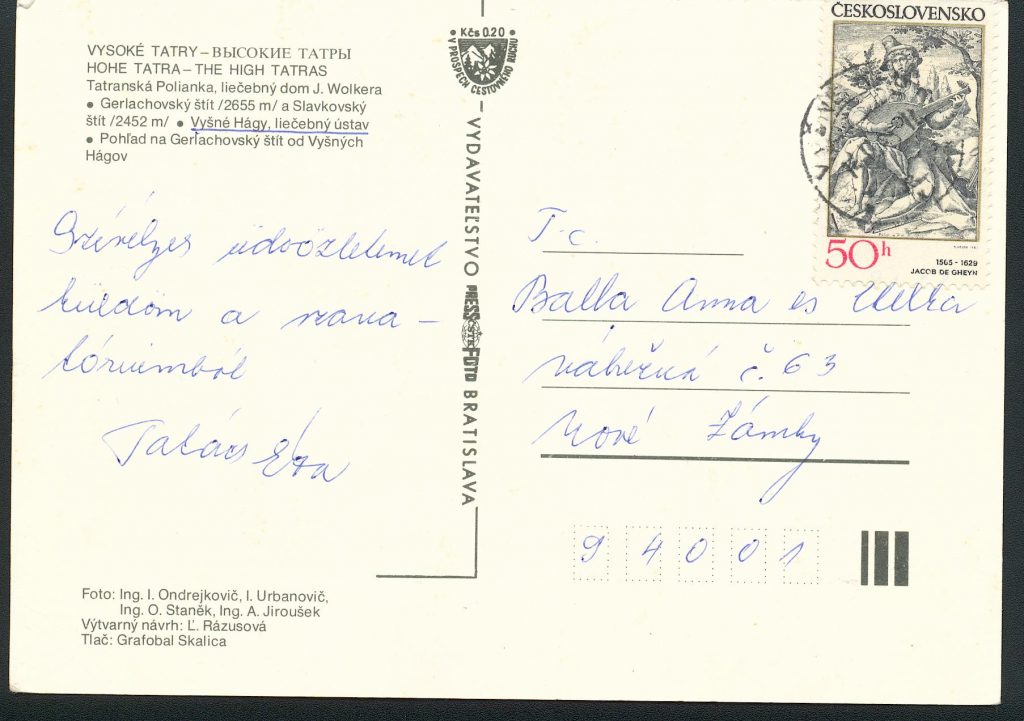 VYSOKÉ TATRY – ВЫСОКИЕ ТАТРЫ
HOHE TATRA – THE HIGH TATRAS
Tatranská Polianka, liečebný dom J. Wolkera
● Gerlachovský štít /2655 m/ a Slavkovský
štít /2452 m/ ● Vyšné Hágy, liečebný ústav
● Pohľad na Gerlachovský štít od Vyšných
Hágov
Szívélyes üdvözletemet
küldöm a szana –
tóriumból
Takács Éva
Foto: Ing. I. Ondrejkovič, I. Urbanovič,
Ing. O. Staněk, Ing. A. Jiroušek
Výtvarný návrh: Ľ. Rázusová
Tlač: Grafobal Skalica
• Kčs 0.20 •
V PROSPECH CESTOVNÉHO RUCHU
VYDAVATEĽSTVO PRESSFOTO BRATISLAVA
ČSTK
ČESKOSLOVENSKO
50h
1565 - 1629
JACOB DE GHEYN
T. c.
Balla Anna és
nábřežná č. 63
Nové Zámky
94001